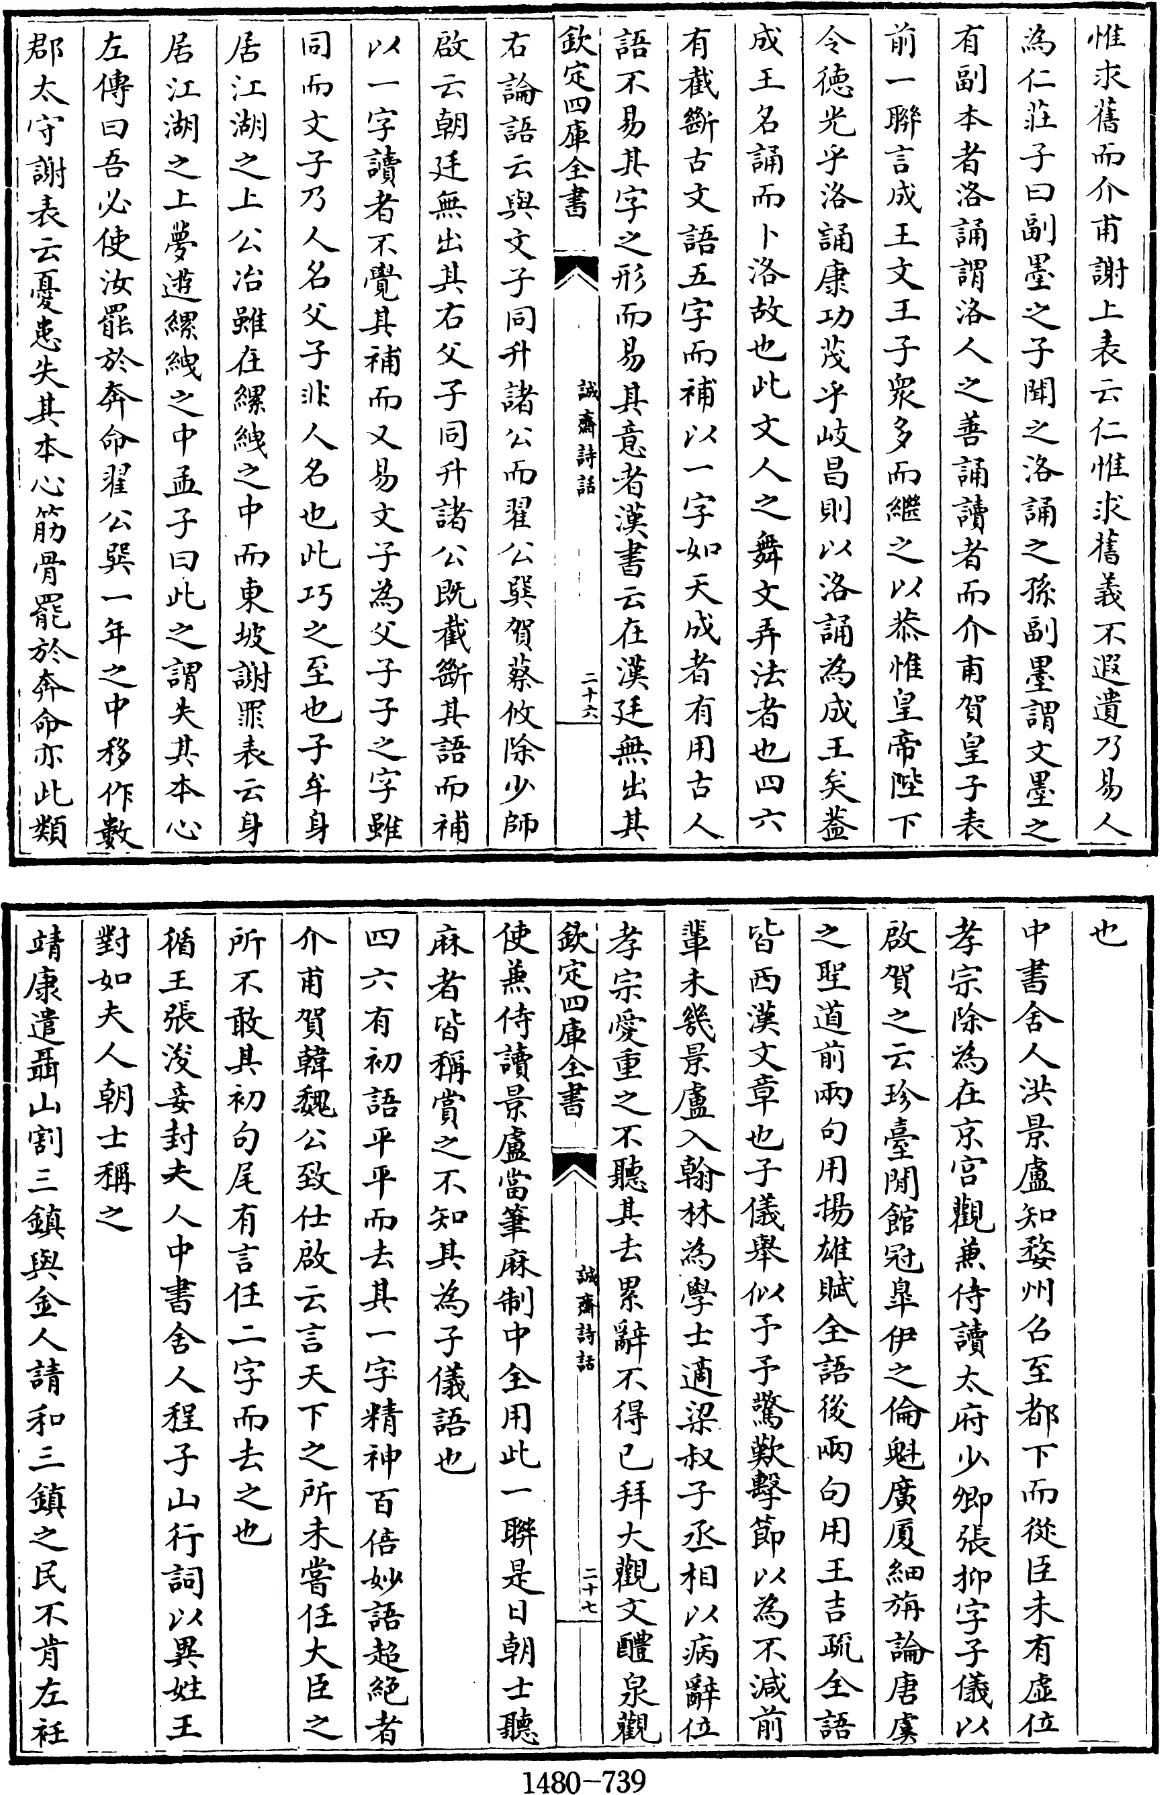 惟求舊而介甫謝上表云仁惟求舊義不遐遺乃易人
為仁莊子曰副墨之子聞之洛誦之孫副墨謂文墨之
有副本者洛誦謂洛人之善誦讀者而介甫賀皇子表
前一聯言成王文王子衆多而繼之以恭惟皇帝陛下
令徳光乎洛誦康功茂乎岐昌則以洛誦為成王矣葢
成王名誦而卜洛故也此文人之舞文弄法者也四六
有截斷古文語五字而補以一字如天成者有用古人
語不易其字之形而易其意者漢書云在漢廷無出其
欽定四庫全書
誠齋詩話
二十六
右論語云與文子同升諸公而翟公巽賀蔡攸除少師
啟云朝廷無出其右父子同升諸公既截斷其語而補
以一字讀者不覺其補而又易文子為父子子之字雖
同而文子乃人名父子非人名也此巧之至也子牟身
居江湖之上公冶雖在縲絏之中而東坡謝罪表云身
居江湖之上夢遊縲絏之中孟子曰此之謂失其本心
左傳曰吾必使汝罷於奔命翟公巽一年之中移作數
郡太守謝表云憂患失其本心筋骨罷於奔命亦此類
也
中書舍人洪景盧知婺州召至都下而從臣未有虛位
孝宗除為在京宮觀兼侍讀太府少卿張抑字子儀以
啟賀之云珍臺閒館冠臯伊之倫魁廣厦細旃論唐虞
之聖道前兩句用揚雄賦全語後兩句用王吉疏全語
皆西漢文章也子儀舉似予予驚歎擊節以為不減前
輩未幾景盧入翰林為學士適梁叔子丞相以病辭位
孝宗愛重之不聽其去累辭不得已拜大觀文醴泉觀
欽定四庫全書
誠齋詩話
二十七
使兼侍讀景盧當筆麻制中全用此一聯是日朝士聽
麻者皆稱賞之不知其為子儀語也
四六有初語平平而去其一字精神百倍妙語超絶者
介甫賀韓魏公致仕啟云言天下之所未嘗任大臣之
所不敢其初句尾有言任二字而去之也
循王張浚妾封夫人中書舍人程子山行詞以異姓王
對如夫人朝士稱之
靖康遣聶山割三鎮與金人請和三鎮之民不肯左衽
1480-739